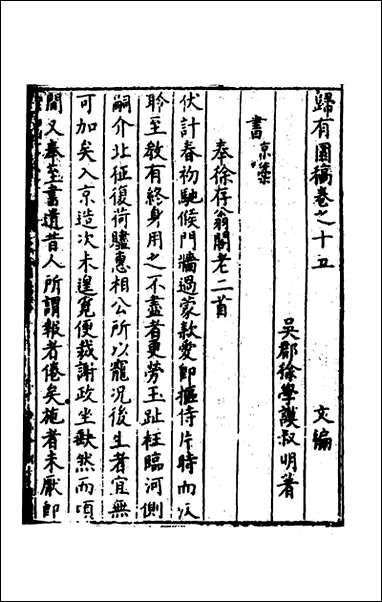 歸有園稿卷之十五　文編
吳郡徐學謨叔明著
書 京藁
奉徐存翁閣老二首
伏計春初馳候門牆過蒙款愛即摳侍片時而仄
聆至教有終身用之不盡者更勞玉趾枉臨河側
嗣介北征復荷贐惠相公所以寵況後生者宜無
可加矣入京造次未遑覓便裁謝政坐缺然而頃
間又奉至書遺昔人所謂報者倦矣施者未厭即